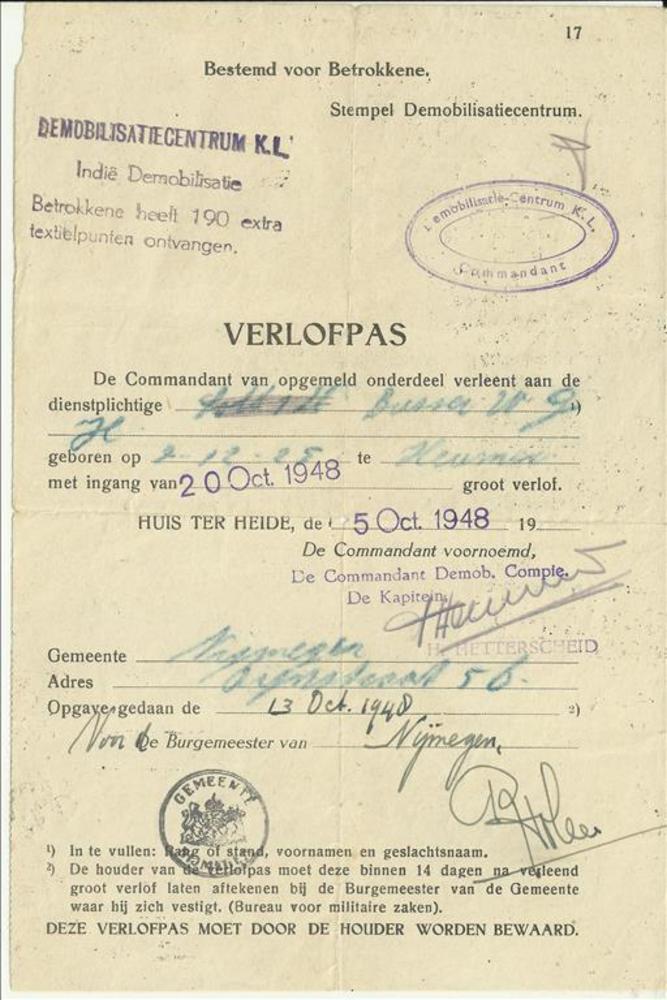 17
Bestemd voor Betrokkene.
Stempel Demobilisatiecentrum.
DEMOBILISATIECENTRUM K.L.
Indië Demobilisatie
Betrokkene heeft 190 extra
textielpunten ontvangen.
Demobilisatie-Centrum K. L.
Commandant
VERLOFPAS
De Commandant van opgemeld onderdeel verleent aan de
dienstplichtige Busser W G ¹)
H
geboren op 2-12-25 te Heumen
met ingang van 20 Oct. 1948 groot verlof.
HUIS TER HEIDE, de 5 Oct. 1948 19
De Commandant voornoemd,
De Commandant Demob. Compie.
De Kapitein,
H. HETTERSCHEID
Gemeente Nijmegen
Adres 56.
Opgave gedaan de 13 Oct. 1948 ²)
Voor de Burgemeester van Nijmegen,
GEMEENTE
¹) In te vullen: Rang of stand, voornamen en geslachtsnaam.
²) De houder van de verlofpas moet deze binnen 14 dagen na verleend
groot verlof laten aftekenen bij de Burgemeester van de Gemeente
waar hij zich vestigt. (Bureau voor militaire zaken).
DEZE VERLOFPAS MOET DOOR DE HOUDER WORDEN BEWAARD.